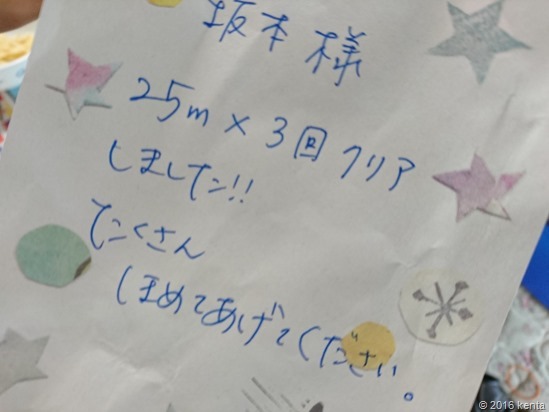 坂本様
25m×3回クリア
しました!!
たくさん
ほめてあげてください。
© 2016 kenta